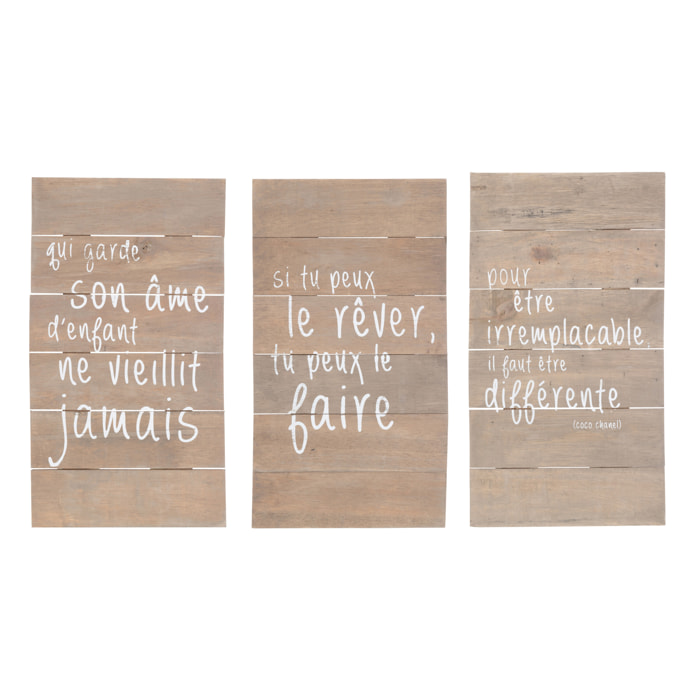 qui garde
son âme
d'enfant
ne vieillit
jamais
si tu peux
le rêver,
tu peux le
faire
pour
être
irremplacable,
il faut être
différente
(coco chanel)